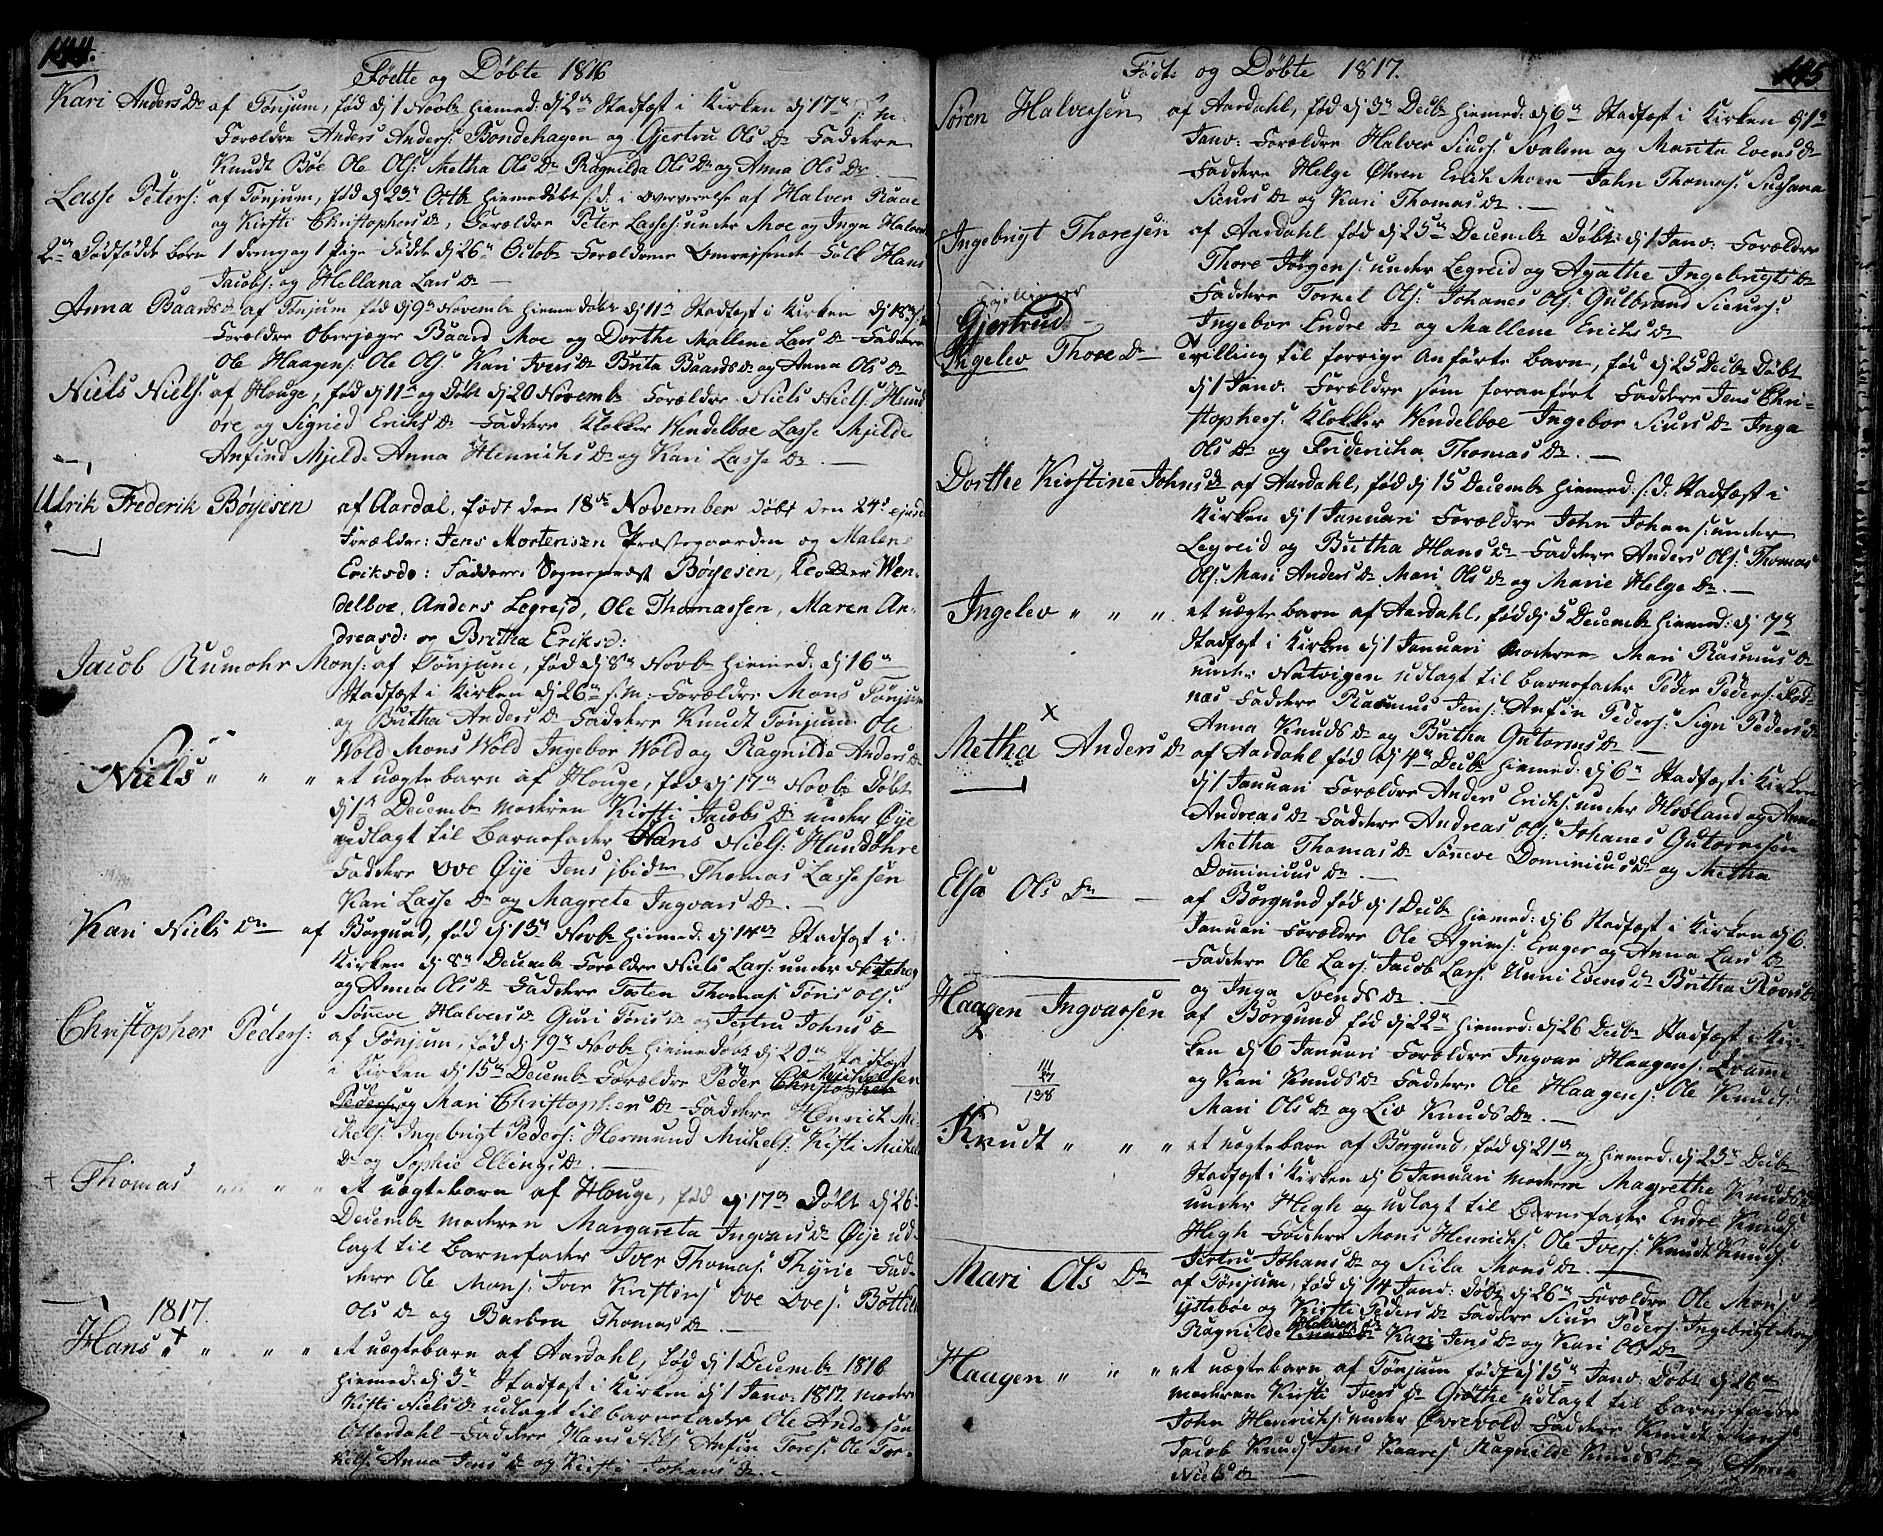 144.
Födte og Döbte 1816
Kari Anders Dr af Tönjum, fød dj 1 Novbr hiemed: dj 2n Stadfæst i Kirken dj 17n s: M.
Forældre Anders Anders: Bondehagen og Gjertru Ols Dr Faddere
Knudt Böe Ole Ols: Metha Ols Dr Ragnilda Ols Dr og Anna Ols Dr
Lasse Peters: af Tönjum, fød dj 23n Octb hiemedøbt s: d: i overværelse af Halver Raae
og Kirsti Christophers Dr, Forældre Peter Lasses: under Moe og Inga Halvers
2n Dødfødte børn 1 dreng og 1 Pige fødte dj 26n Octob Forældrene Omreisende Folk Hans
Jacobs: og Hellena Lars Dr —
Anna Baards Dr af Tönjum fød dj 9n Novembr hiemedøbt dj 11n Stadfæst i Kirken dj 18n
Forældre Oberjæger Baard Moe og Dorthe Mallene Lars Dr Faddere
Ole Haagens: Ole Ols: Kari Ivers Dr Brita Baards Dr og Anna Ols Dr
Niels Niels: af Houge, fød dj 11n og Døbt dj 20 Novembr Forældre Niels Niels: Hund
öre og Signed Eriks Dr Faddere Klokker Wendelboe Lasse Mjelde
Anfind Mjelde Anna Henrichs Dr og Kari Lasse Dr —
Ulrik Frederik Böyesen af Aardal, født den 18de November døbt den 24d ejusd
Forælder: Jens Mortensen Præstegaarden og Malene
Eriksdr: Faddere: Sognepræst Böyesen, Klokker Wen-
delboe, Anders Legreid, Ole Thomassen, Maren An-
dreasd: og Britha Eriksd:
Jacob Rumohr Mons: af Tönjum, fød dj 8n Novbr hiemed: dj 16n
Stadfæst i Kirken dj 26n s: M: Forældre Mons Tönjum
og Britha Anders Dr Faddere Knudt Tönjum Ole
Wold Mons Wold Ingebor Wold og Ragnilde Anders Dr
Niels " " " et uægte barn af Houge, fød dj 17n Novbr Døbt
dj 1n Decembr moderen Kirsti Jacobs Dr under Øye
udlagt til Barnefader Hans Niels: Hundöhre
Faddere Ove Øye Jens ibidm Thomas Lassesen
Kari Lasse Dr og Magrete Ingvars Dr —
Kari Niels Dr af Borgund, fød dj 13n Novbr hiemed: dj 14n Stadfæst i
Kirken dj 8n Decembr Forældre Niels Lars: under
og Anna Ols Dr Faddere Tosten Thomas: Töris Ols:
Sönneve Halvers Dr Guri Töris Dr og Jertru Johns Dr
Christopher Peders: af Tönjum, fød dj 19n Novbr hiemedøbt dj 20n Stadfæst
i Kirken dj 15n Decembr Forældre Peder Michelsen
og Mari Christophers Dr Faddere Henrich Mi-
chels: Ingebrigt Peders: Hermund Michels: Kirsti Michels
Dr og Sophie Ellings Dr —
+ Thomas " " " Et uægte barn af Houge, fød dj 17n Døbt dj 26
Decembr moderen Margareta Ingvars Dr Øye ud-
lagt til barnefader Iver Thomas: Thyrie Fad-
dere Ole Mons: Iver Kristens: Ove Oves: Botilla
Ols Dr og Barbra Thomas Dr —
1817.
Hans + " " " et uægte barn af Aardahl, fød dj 1 Decembr 1816
hiemed: dj 3n Stadfæst i Kirken dj 1 Janv: 1817 moder
Kirsti Niels Dr udlagt til barnefader Ole Andersen
Otterdahl Faddere Hans Niels: Anfin Tores: Ole Tor-
kels: Anna Jens Dr og Kirsti Johans Dr —
145
Födte og Döbte 1817.
Sören Halversen af Aardahl, fød dj 3n Decbr hiemed: dj 6n Stadfæst i Kirken dj 1n
Janv: Forældre Halver Siurs: Svalem og Marita Evens Dr
Faddere Helge Öhren Erik Moen John Thomas: Sussana
Siurs Dr og Kari Thomas Dr —
Ingebrigt Thoresen af Aardahl fød dj 25n Decembr Døbt dj 1 Janv: Forældre
Thore Jörgens: under Legreid og Agathe Ingebrigts Dr
Faddere Tornel Ols: Johanes Ols: Gulbrand Siurs:
Ingebor Endre Dr og Mallene Erichs Dr
Tvillinger
Gjertrud
Ingelev Thore Dr — Tvilling til forrige Anførte barn, fød dj 25 Decbr Døbt
dj 1 Janv: Forældre som foranført Faddere Jens Chri-
stophers: Klokker Wendelboe Ingebor Siurs Dr Inga
Ols Dr og Friderikha Thomas Dr —
Dorthe Kirstine Johns Dr af Aardahl, fød dj 15 Decembr hiemed: s: d: Stadfæst i
Kirken dj 1 Januari Forældre John Johans: under
Legreid og Britha Hans Dr Faddere Anders Ols: Thomas
Ols: Mari Anders Dr Mari Ols Dr og Marie Helge Dr —
Ingelev " " " et uægte barn af Aardahl, fød dj 5 Decembr hiemed: dj 7n
Stadfæst i Kirken dj 1 Januari moderen Mari Rasmus Dr
under Natvigen udlagt til barnefader Peder Peders: Fod-
næs Faddere Rasmus Jens: Anfin Peders: Signi Peders Dr
Anna Knuds Dr og Britha Gutorms Dr —
x
Metha Anders Dr af Aardahl fød dj 4n Decbr hiemed: dj 6n Stadfæst i Kirken
dj 1 Januari Forældre Anders Erichs: under Hovland og Anna
Andreas Dr Faddere Andreas Ols: Johanes Gutormsen
Metha Thomas Dr Sönneve Dominicus Dr og Metha
Dominicus Dr —
Elsa Ols Dr — af Borgund fød dj 1 Decbr hiemed: dj 6 Stadfæst i Kirken dj 6
Januari Forældre Ole Agrims: Erager og Anna Lars Dr
Faddere Ole Lars: Jacob Lars: Unni Evens Dr Britha
og Inga Svends Dr —
Haagen Ingvarsen af Borgund fød dj 22n hiemed: dj 26 Decbr Stadfæst i Kir-
ken dj 6 Januari Forældre Ingvar Haagens: Qvamme
og Kari Knuds Dr Faddere Ole Haagens: Ole Knuds:
Mari Ols Dr og Liv Knuds Dr —
138
Knudt " " " et uægte barn af Borgund, fød dj 21n og hiemed: dj 23n Decbr
Stadfæst i Kirken dj 6 Januari moderen Magrethe Knuds Dr
under High og udlagt til Barnefader Endre Knuds:
High Faddere Mons Henrichs: Ole Ivers: Knudt Knuds:
Jertru Johans Dr og Siila Mons Dr —
Mari Ols Dr af Tönjum, fød dj 14 Janv: Døbt dj 26n Forældre Ole Mons:
Ysteböe og Kirsti Peders Dr Faddere Siur Peders: Ingebrigt Mons
Ragnilde Halvers Dr Kari Jens Dr og Kari Ols Dr
Haagen " " " et uægte barn af Tönjum født dj 15n Janv: Døbt dj 26n
moderen Kirsti Ivers Dr Grøthe udlagt til barnefader
John Henrichs: under Øvrevold Faddere Knudt Mons:
Jacob Knuds: Jens Kaares: Ragnilde Knuds Dr og Anna
Niels Dr —